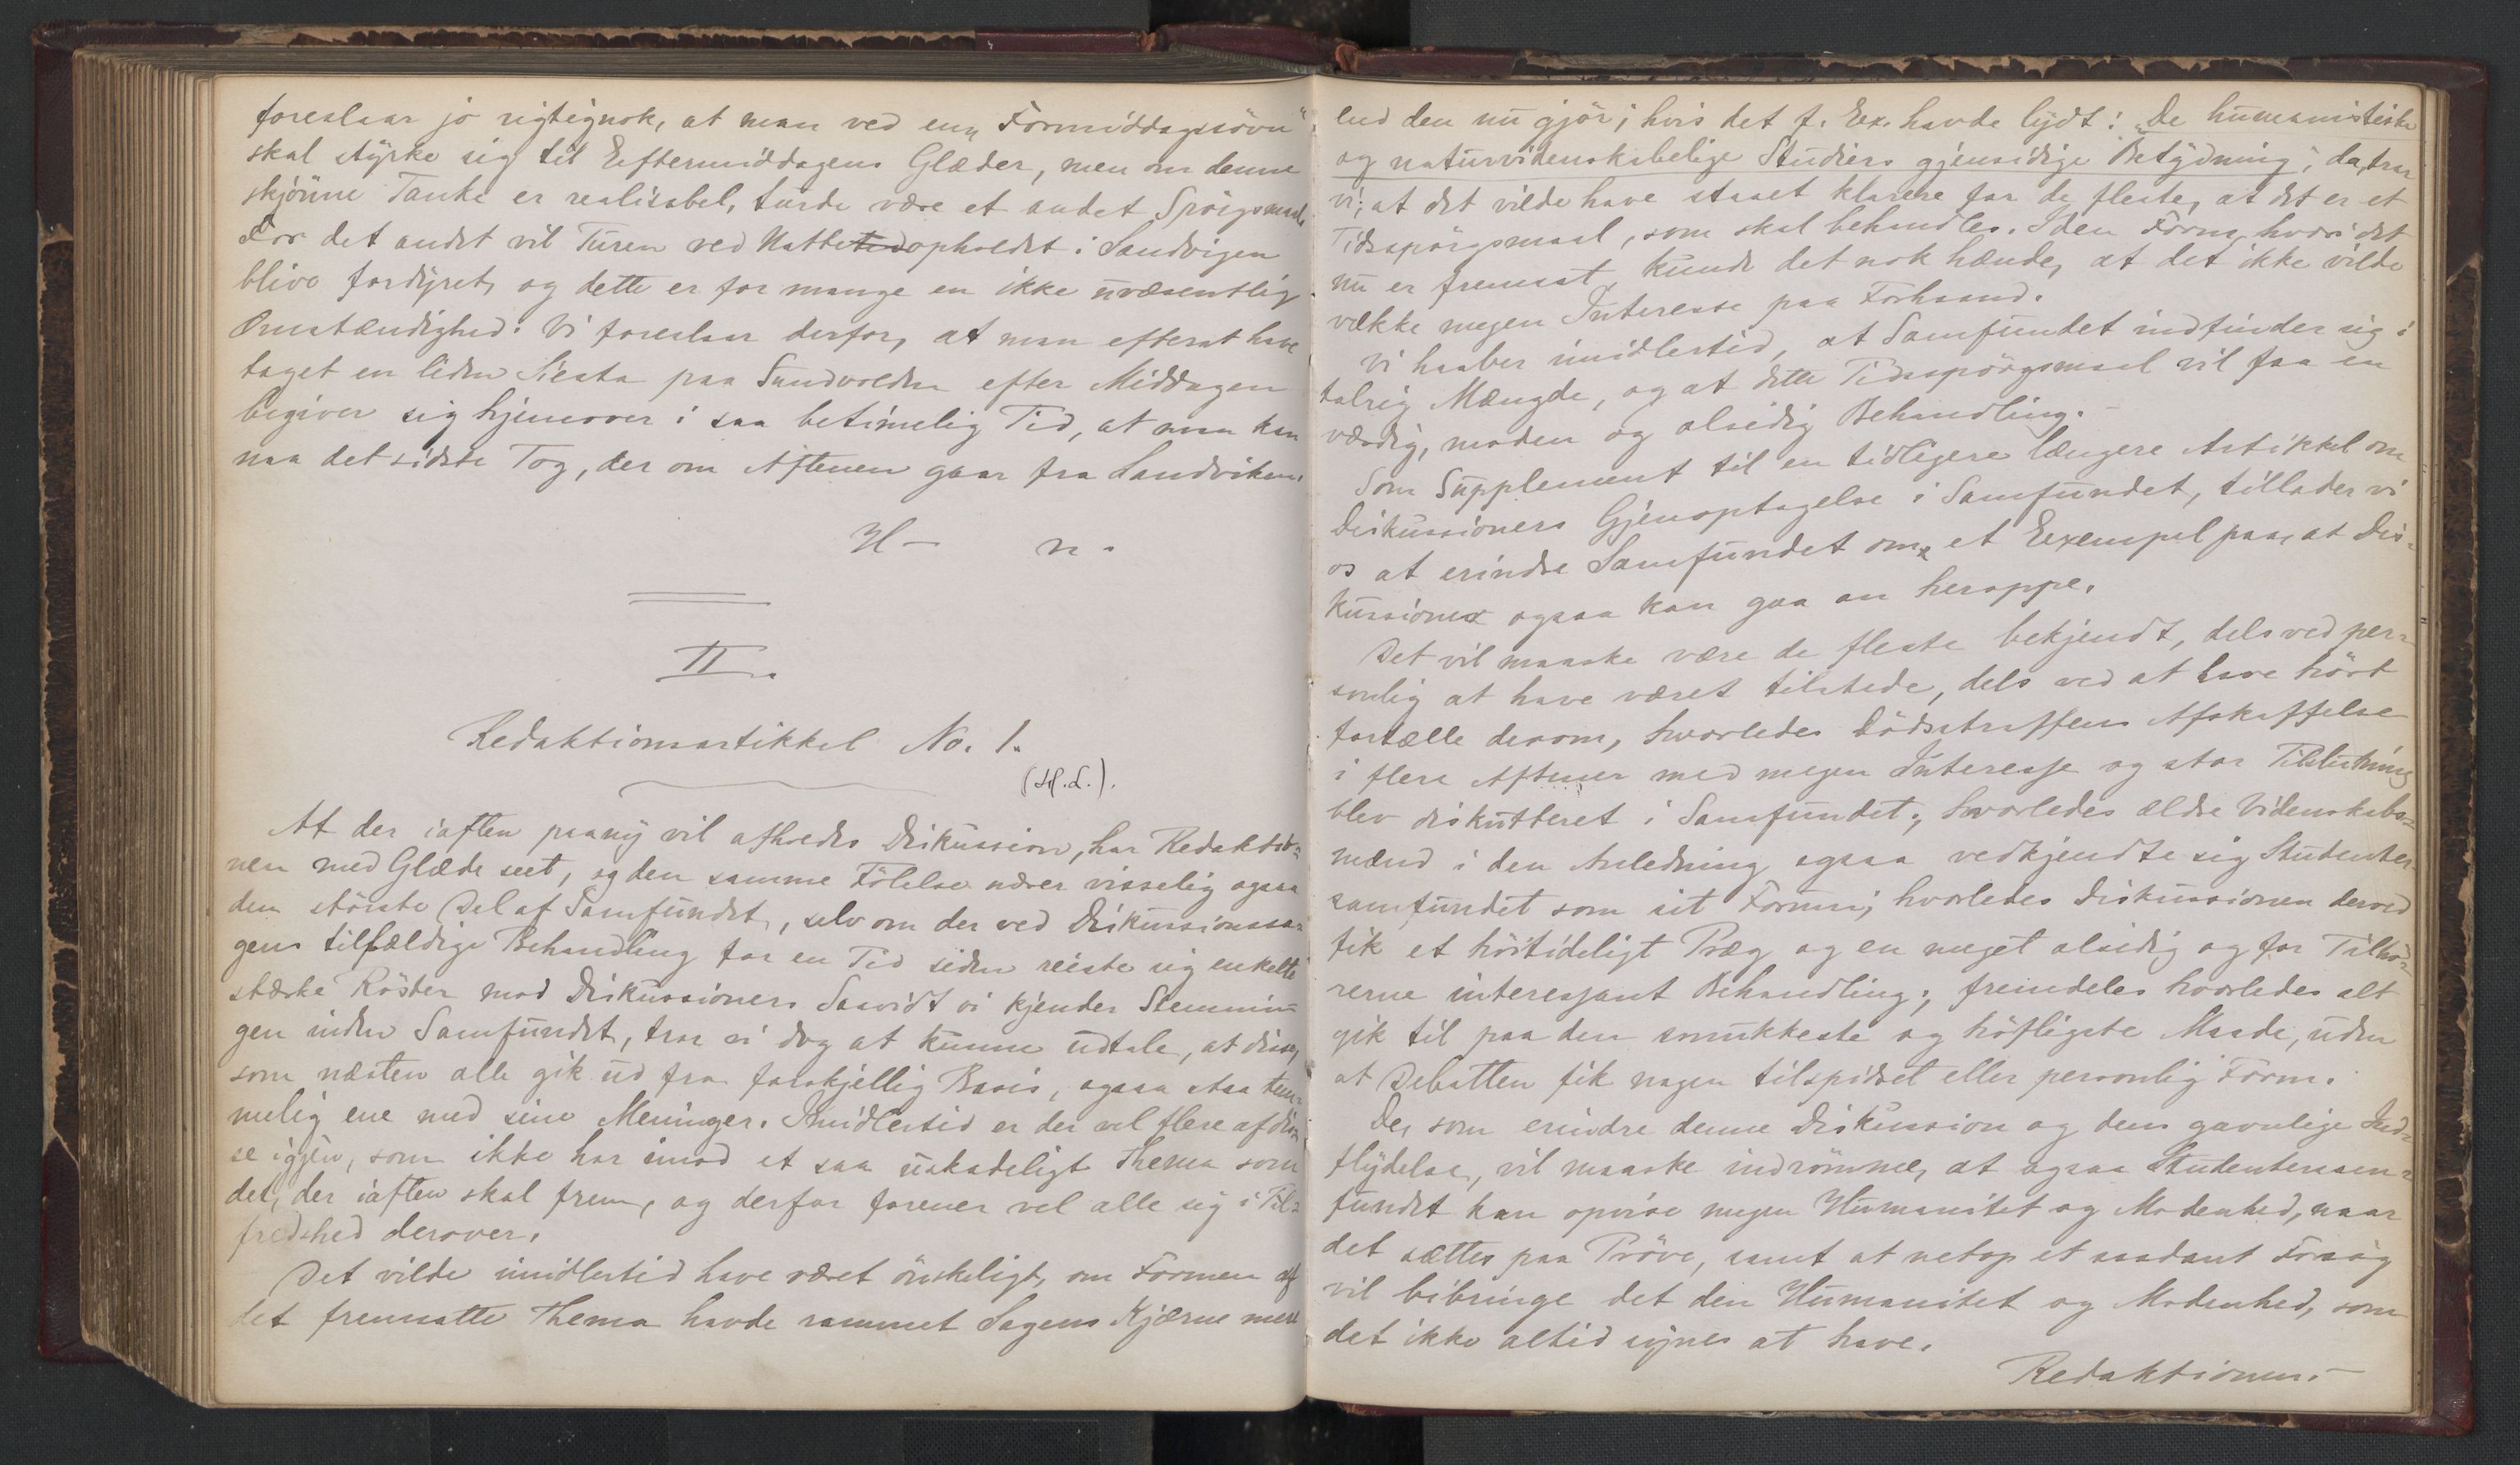 foreslaar jo rigtignok, at man ved en „Formiddagssövn"
skal styrke sig til Eftermiddagens Glæder, men om denne
skjönne Tanke er realisabel, turde være et andet Spörgsmaal.
For det andet vil Turen ved Natteopholdet i Sandvigen
blive fordyret, og dette er for mange en ikke uvæsentlig
Omstændighed. Vi foreslaar derfor, at man efterat have
taget en liden Siesta paa Sundvolden efter Middagen
begiver sig hjemover i saa betimelig Tid, at man kan
naa det sidste Tog, der om Aftenen gaar fra Sandviken.
H— n.
II.
Redaktionsartikkel No. 1.
(H.L.).
At der iaften paany vil afholdes Diskussion, har Redaktio-
nen med Glæde seet, og den samme Fölelse nærer visselig ogsaa
den störste Del af Samfundet, selv om der ved Diskussionssa-
gens tilfældige Behandling for en Tid siden reiste sig enkelte
stærke Röster mod Diskussioner. Saavidt vi kjender Stemnin-
gen inden Samfundet, tror vi dog at kunne udtale, at disse,
som næsten alle gik ud fra forskjellig Basis, ogsaa staa tem-
melig ene med sine Meninger. Imidlertid er der vel flere af dis-
se igjen, som ikke har imod et saa uskadeligt Thema som
det, der iaften skal frem, og derfor forener vel alle sig i Til-
fredshed derover.
Det vilde imidlertid have været önskeligt, om Formen af
det fremsatte Thema havde rammet Sagens Kjærne mere
end den nu gjör; hvis det f. Ex. havde lydt: „De humanistiske
og naturvidenskabelige Studiers gjensidige Betydning", da tror
vi, at det vilde have staaet klarere for de fleste, at det er et
Tidsspörgsmaal, som skal behandles. I den Form, hvori det
nu er fremsat, kunde det nok hænde, at det ikke vilde
vække megen Interesse paa Forhaand.
Vi haaber imidlertid, at Samfundet indfinder sig i
talrig Mængde, og at dette Tidsspörgsmaal vil faa en
værdig, moden og alsidig Behandling.—
Som Supplement til en tidligere længere Artikkel om
Diskussioners Gjenoptagelse i Samfundet, tillader vi
os at erindre Samfundet om et Exempel paa, at Dis-
kussioner ogsaa kan gaa an heroppe.
Det vil maaske være de fleste bekjendt, dels ved per-
sonlig at have været tilstede, dels ved at have hört
fortælle derom, hvorledes Dödsstraffens Afskaffelse
i flere Aftener med megen Interesse og stor Tilslutning
blev diskutteret i Samfundet; hvorledes ældre Videnskabs-
mænd i den Anledning ogsaa vedkjendte sig Studenter-
samfundet som sit Forum; hvorledes Diskussionen derved
fik et höitideligt Præg og en meget alsidig og for Tilhö-
rerne interessant Behandling; fremdeles hvorledes alt
gik til paa den smukkeste og höfligste Maade, uden
at Debatten fik nogen tilspidset eller personlig Form.
De, som erindre denne Diskussion og dens gavnlige Ind-
flydelse, vil maaske indrömme, at ogsaa Studentersam-
fundet kan opvise megen Humanitet og Modenhed, naar
det sættes paa Pröve, samt at netop et saadant Forsög
vil bibringe det den Humanitet og Modenhed, som
det ikke altid synes at have.
Redaktionen.—